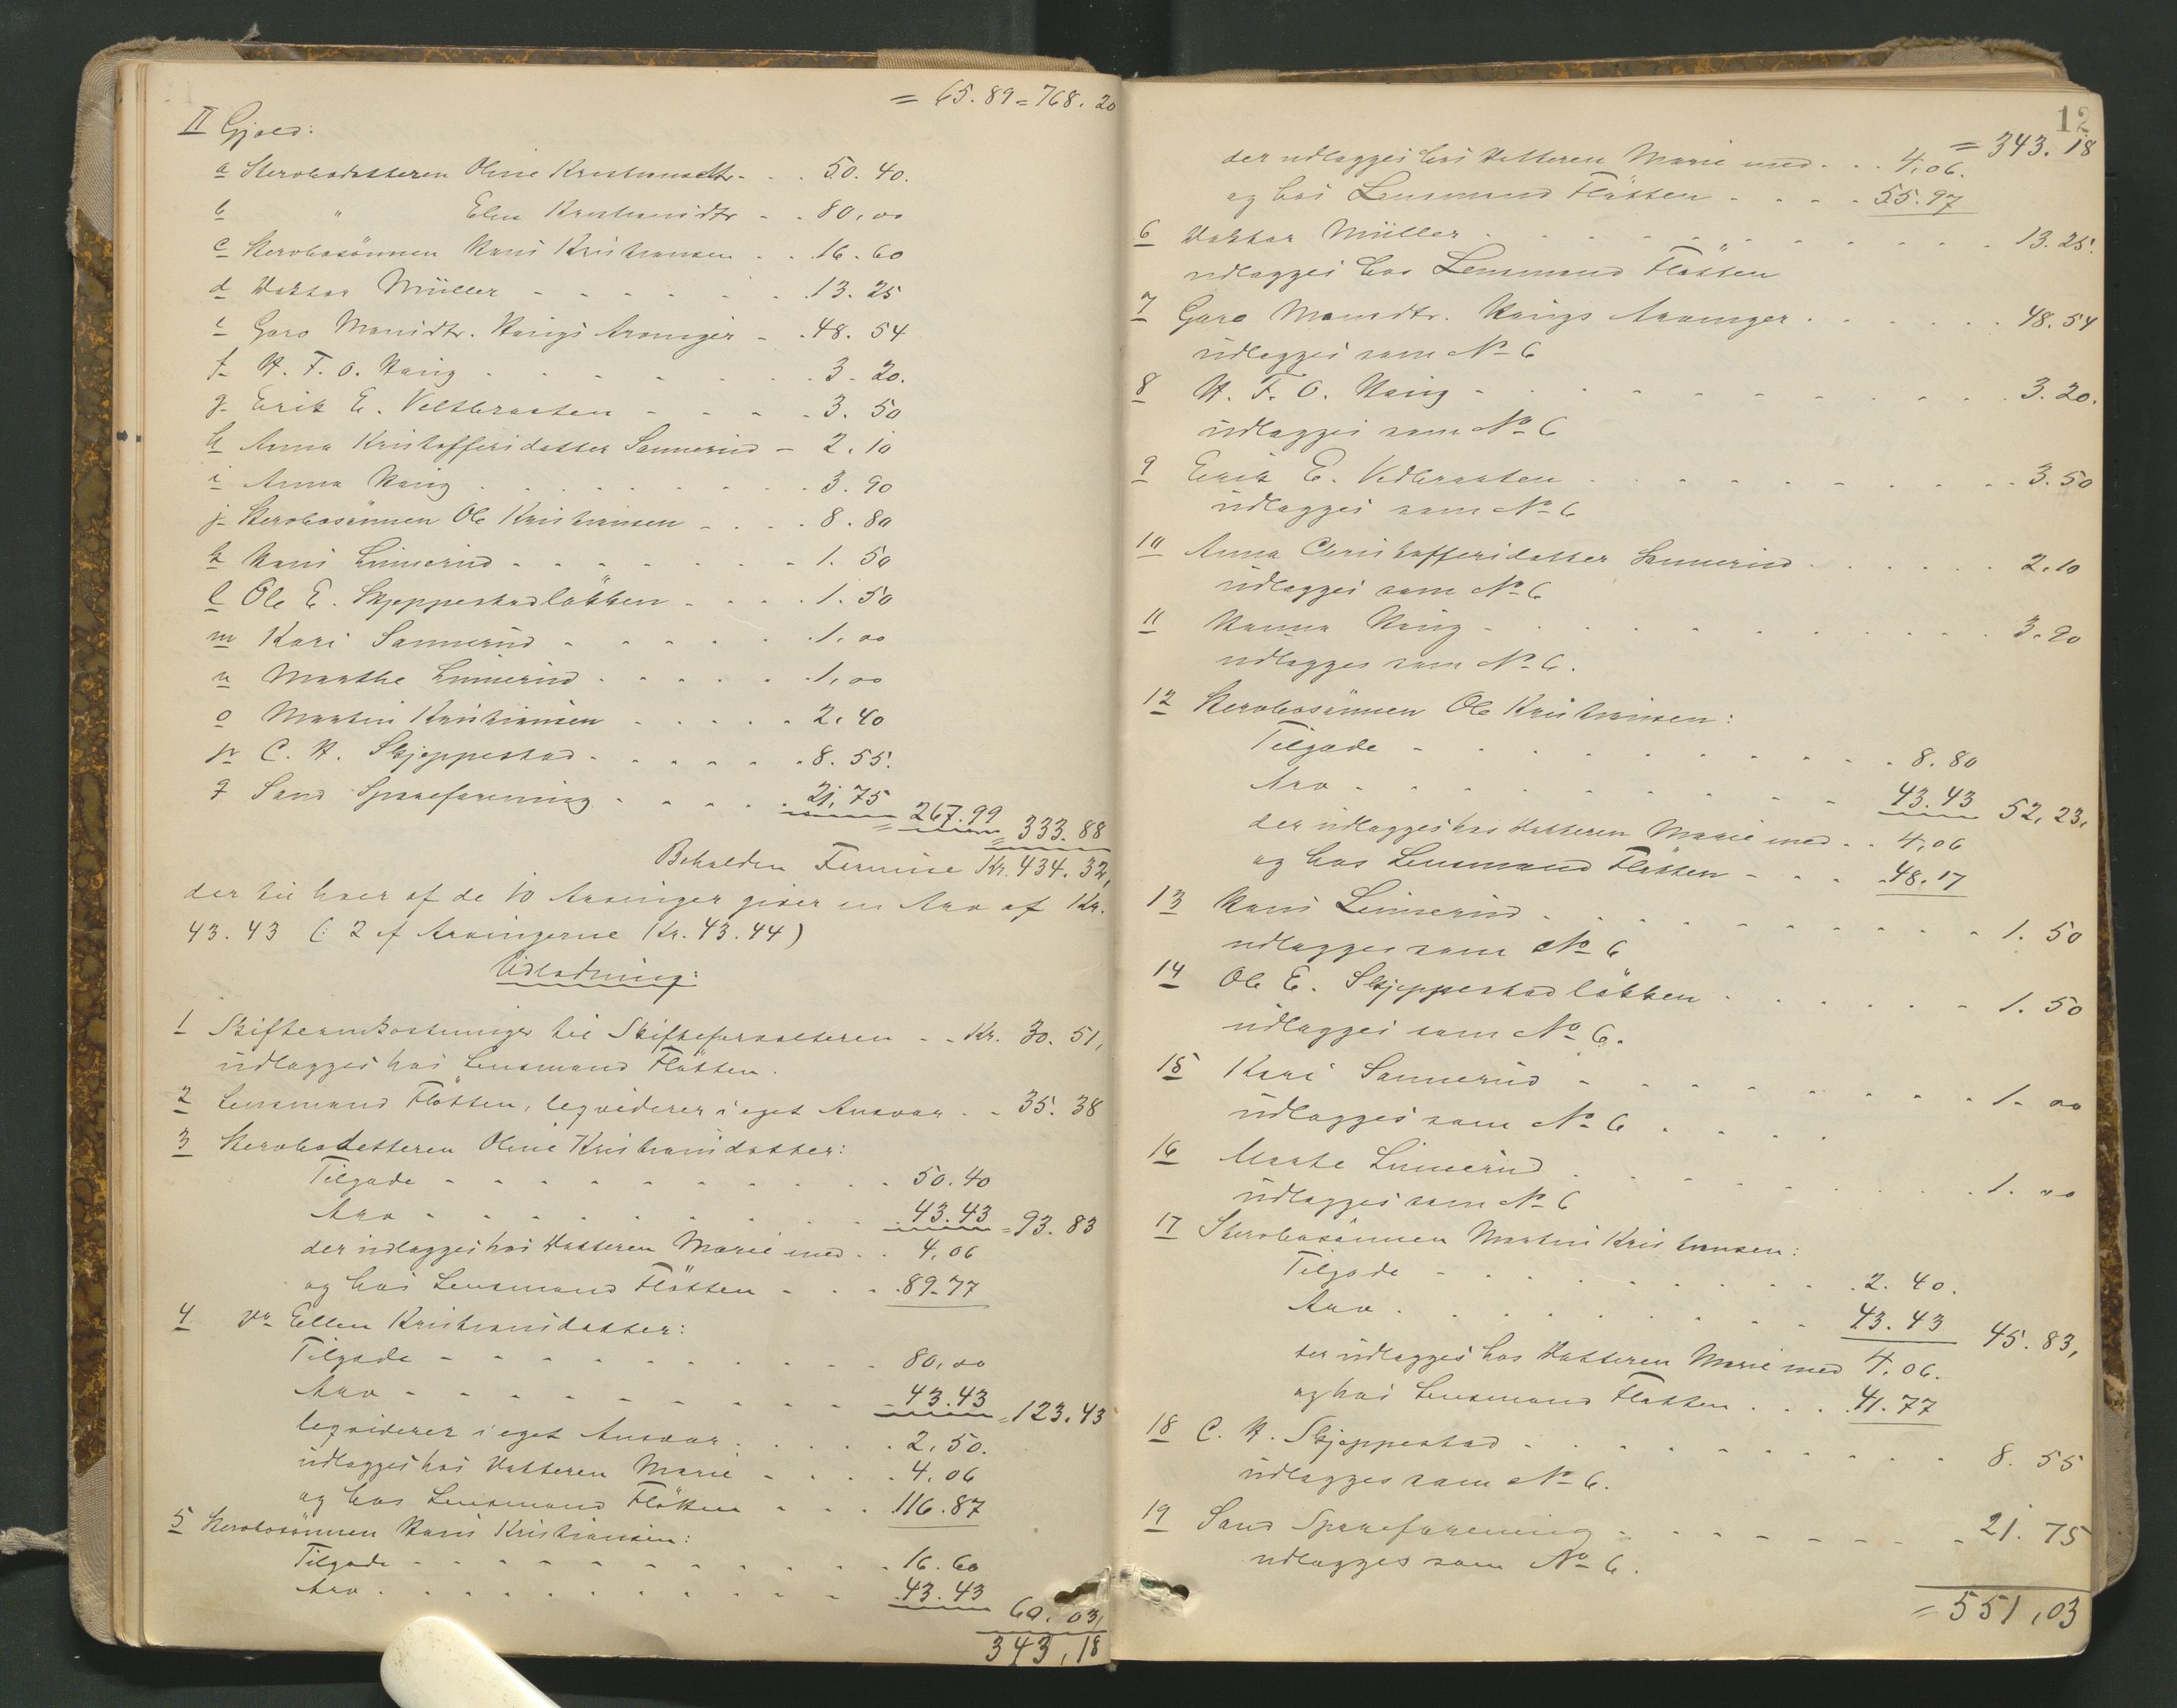 = 65.89 = 768.20
II Gjæld:
a Sterbodatteren Oline Kristiansdtr. - . . 50.40.
b " Elen Kristiansdtr - . 80,00
c Sterbosönnen Hans Kristiansen . . 16.60
d Doktor Müller - - - - - - . 13.25
e Guro Monsdtr. Haugs Arvinger - . 48.54
f H. F. O. Haug . - - - - - . . 3.20.
g Erik E. Veltbraaten - - - . 3.50
h Anna Kristoffersdatter Sannerud - 2.10
i Anna Haug . . . . . . . . 3.90
j Sterbosönnen Ole Kristiansen - . . . 8.80
k Hans Linnerud - - - - - - - 1.50
l Ole E. Skjeppestadløkken - . . . 1.50
m Kari Sannerud - - - - - . . 1,00
n Marthe Linnerud . - . . . . . 1,00
o Martin Kristiansen . . . . . 2.40
p C. H. Skjeppestad . - - - - . . 8.55.
q Sand Spareforening . . - . . . 21,75
= 267.99
= 333.88
Beholden Formue Kr. 434.32,
der til hver af de 10 Arvinger giver en Arv af Kr.
43.43 (: 2 af Arvingerne Kr. 43.44)
Udlodning:
1 Skifteomkostninger til Skifteforvalteren - - Kr. 30.51,
udlægges hos Lensmand Fløtten.
2 Lensmand Fløtten, leqviderer i eget Ansvar . - 35.38
3 Sterbodatteren Oline Kristiansdatter:
Tilgode - - - - - - - - - - 50.40
Arv - - - - - - - - - - . 43.43 = 93.83
der udlægges hos Datteren Marie med . . 4,06
og hos Lensmand Fløtten - . . . 89.77
4 do Ellen Kristiansdatter:
Tilgode - - - - - - - - - - 80,00
Arv - - - - - - - - - - 43.43 = 123.43
leqviderer i eget Ansvar . . . . . 2,50.
udlægges hos Datteren Marie - . . . 4.06
og hos Lensmand Fløtten - . . 116.87
5 Sterbosönnen Hans Kristiansen:
Tilgode - - - - - - - - - - 16.60
Arv . . . . . . . . . . . 43.43 60.03,
343,18
12
= 343.18
der udlægges hos Datteren Marie med . . . 4,06.
og hos Lensmand Fløtten - . . . . 55.97
6 Doktor Müller . . . . . . . . . . . 13.25.
udlægges hos Lensmand Fløtten
7 Guro Monsdtr. Haugs Arvinger . . . . . . 48.54
udlægges som No 6
8 H. F. O. Haug - . . . . . . . . . . 3.20.
udlægges som No 6
9 Erik E. Vedbraaten . . . . . . . . . . 3.50
udlægges som No 6
10 Anna Christoffersdatter Sannerud . . . . . . 2.10
udlægges som No 6
11 Hanna Haug - . . . . . . . . . . . 3.90
udlægges som No 6.
12 Sterbosönnen Ole Kristiansen:
Tilgode - . . . . . . . . . . . 8.80
Arv . . . . . . . . . . . . 43.43 52,23,
der udlægges hos Datteren Marie med . . 4,06
og hos Lensmand Fløtten - . . . 48.17
13 Hans Linnerud . . . . . . . . . . . 1.50
udlægges som No 6
14 Ole E. Skjeppestad løkken . . . . . . 1.50
udlægges som No 6.
15 Kari Sannerud - . . . . . . . . . . 1.00
udlægges som No 6 . . . .
16 Marte Linnerud . . . . . . . . . . . 1.00
udlægges som No 6
17 Sterbosönnen Martin Kristiansen:
Tilgode - . . . . . . . . . . 2.40.
Arv . . . . . . . . . . . 43.43 45.83,
der udlægges hos Datteren Marie med 4,06.
og hos Lensmand Fløtten . . . . 41.77
18 C. H. Skjeppestad . . . . . . . . . . 8.55
udlægges som No 6.
19 Sand Spareforening - . . . . . . . . . 21.75
udlægges som No 6.
= 551,03